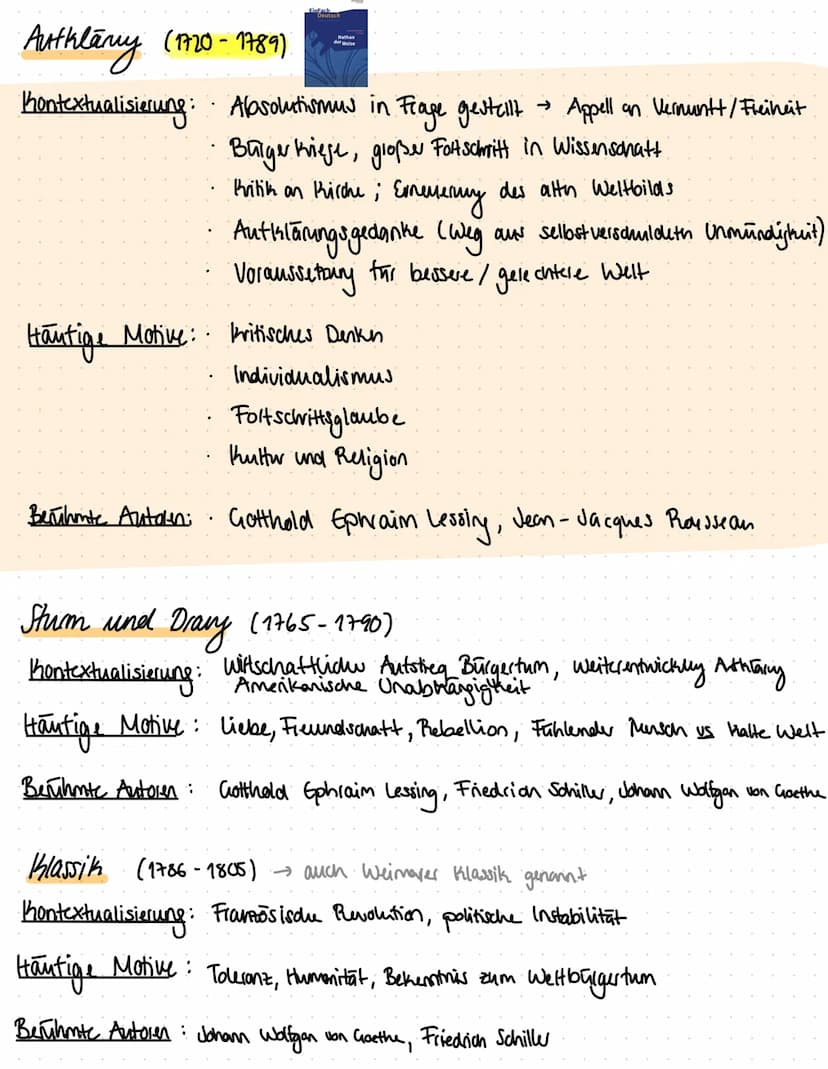 Aufklärung (1720 - 1789)
EinFach
Deutsch
Nathan
der Weise
Kontextualisierung: · Absolutismus in Frage gestellt → Appell an Vernunft/Freiheit
· Bürgerkriege, großer Fortschritt in Wissenschaft
· Kritik an Kirche ; Erneuerung des alten Weltbilds
· Aufklärungsgedanke (Weg aus selbstverschuldeten Unmündigkeit)
· Voraussetzung für bessere / gerechtere Welt
Häufige Motive: · kritisches Denken
· Individualismus
· Fortschrittsglaube
· Kultur und Religion
Berühmte Autoren: · Gotthold Ephraim Lessing, Jean-Jacques Rousseau
Sturm und Drang (1765 - 1790)
Kontextualisierung: Wirtschaftlicher Aufstieg Bürgertum, Weiterentwicklung Aufklärung
Amerikanische Unabhängigkeit
Häufige Motive : Liebe, Freundschaft, Rebellion, Fühlender Mensch vs kalte Welt
Berühmte Autoren : Gotthold Ephraim Lessing, Friedrich Schiller, Johann Wolfgan von Goethe
Klassik (1786 - 1805) → auch Weimarer Klassik genannt
Kontextualisierung: Französische Revolution, politische Instabilität
Häufige Motive : Toleranz, Humanität, Bekenntnis zum Weltbürgertum
Berühmte Autoren : Johann Wolfgan von Goethe, Friedrich Schiller